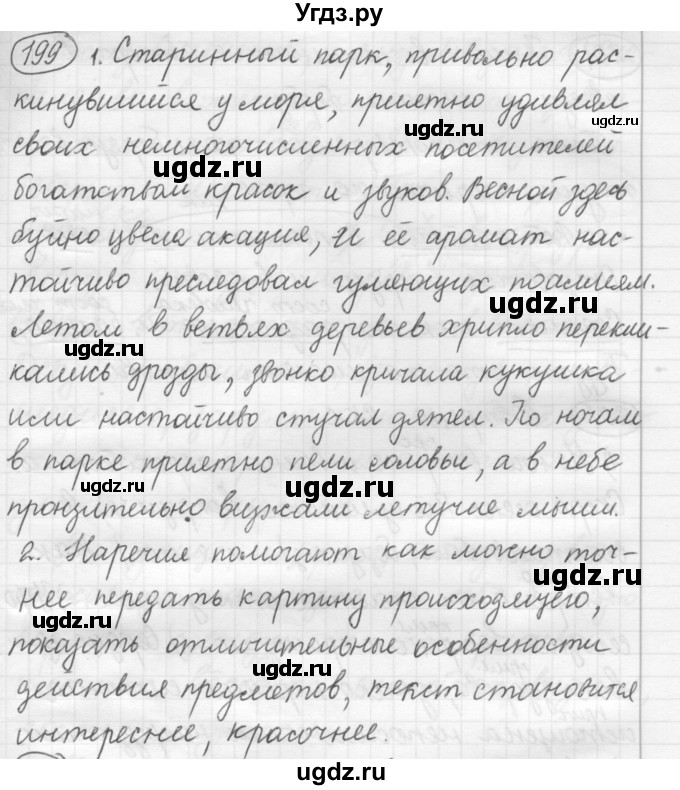 Угдз.ру
199 1. Старинный парк, привольно рас-
кинувшийся у моря, приятно удивлял
ugdz.ru
ugdz.ru
своих немногочисленных посетителей
ugdz.ru
богатством красок и звуков. Весной здесь
буйно цвела акация, и её аромат нас-
тойчиво преследовал гуляющих по аллеям.
ugdz.ru
Летом в ветвях деревьев хрипло перекли-
ugdz.ru
кались дрозды, звонко кричала кукушка
или настойчиво стучал дятел. По ночам
в парке приятно пели соловьи, а в небе
ugdz.ru
ugdz.ru
пронзительно визжали летучие мыши.
2. Наречия помогают как можно точ-
ugdz.ru
нее передать картину происходящего,
показать отличительные особенности
ugdz.ru
действия предметов, текст становится
интереснее, красочнее.
ugdz.ru